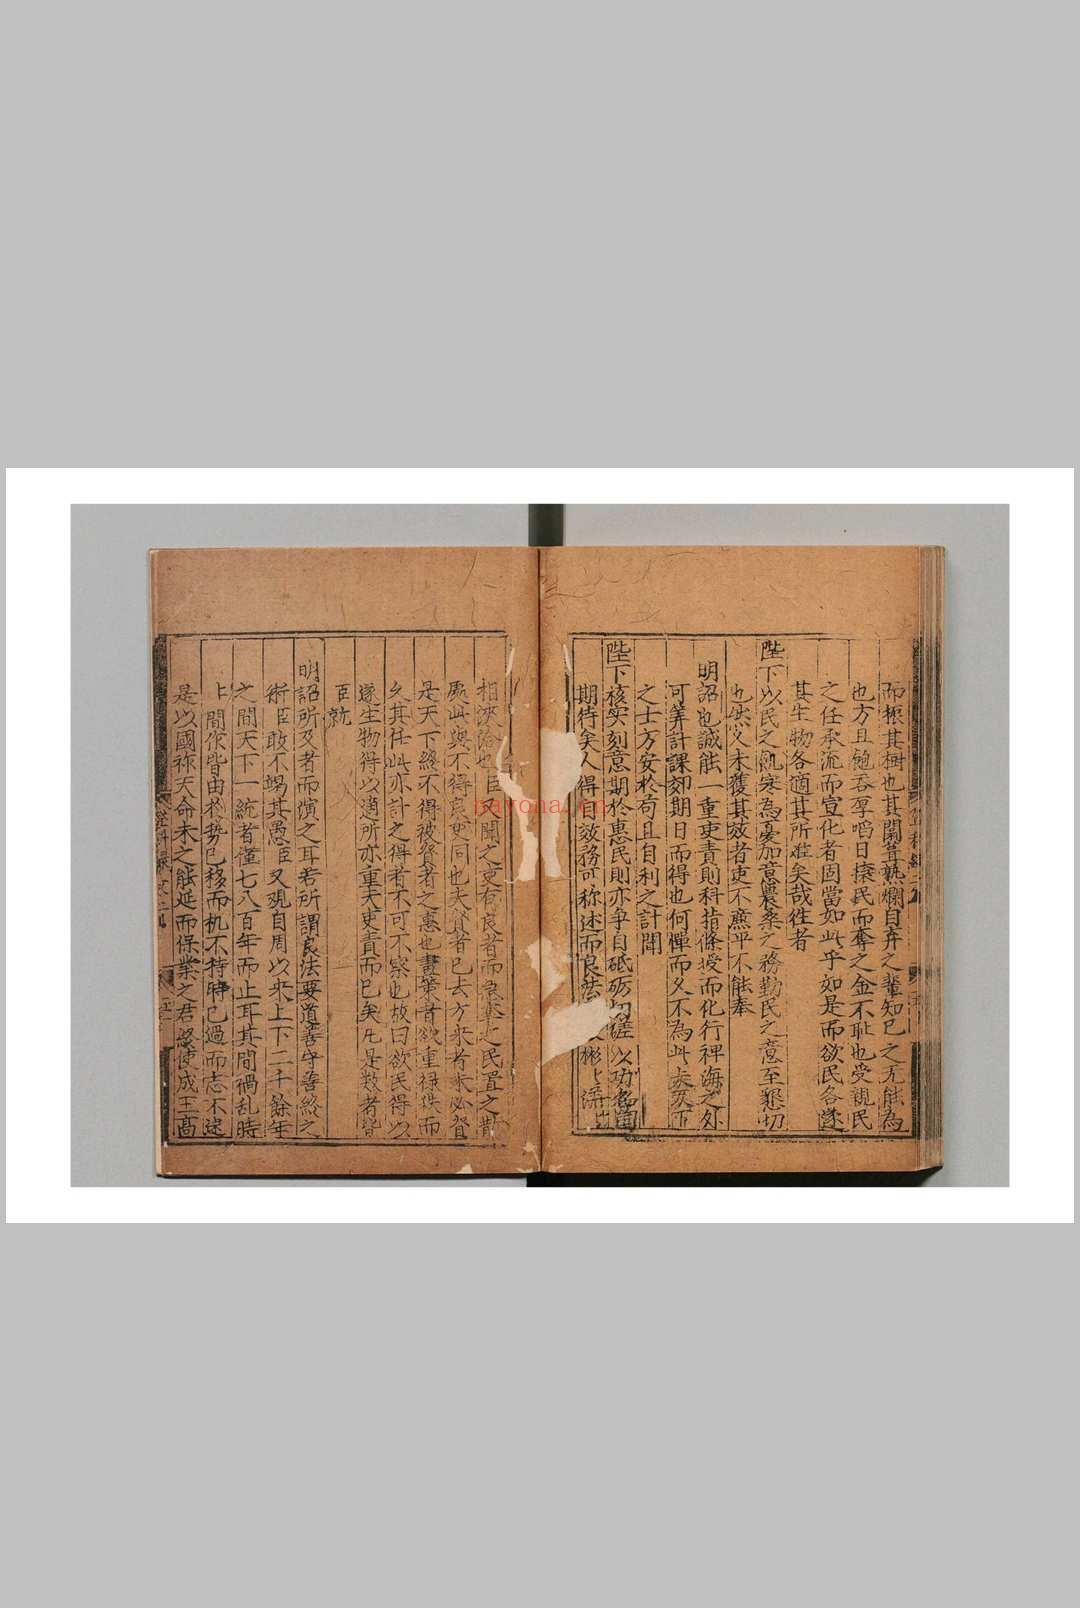 而振其樹也其闒茸孰爛自弃之輩知已之无能為
也方且飽吞厚啗日搒民而奪之金不耻也受親民
之任承流而宣化者固當如此乎如是而欲民各遂
其生物各適其所难矣哉徃者
陛下以民之飢寒為憂加意農桑之務勤民之意至懇切
也然又未獲其效者吏不庶平不能奉
明詔也誠能一重吏責則科指條授而化行裨海之外
可筭計課刻期日而得也何憚而久不為此
之士方安於苟且自利之計聞
陛下核实刻意期於惠民則亦争自砥砺切磋以功名自
期待矣人得自效務可称述而良法 彬
相浹洽也臣 聞之吏有良者而 之民置之
處此與不得良吏同也夫賢者已去方來者未必賢
是天下終不得被賢者之惠也畫策者欲重禄俱而
久其任此亦計之得者不可不察也故曰欲民得以
遂生物得以適所亦重夫吏責而已矣凡是数者皆
臣就
明詔所及者而演之耳若所謂良法要道善守善終之
術臣敢不竭其愚臣又覌自周以來上下二千餘年
之間天下一統者僅七八百年而止耳其間禍乱時
上 間作皆由於势已移而机不待時已過而志不逮
是以國祚天命未之能延而保業之君 使成王髙
nayona.cn